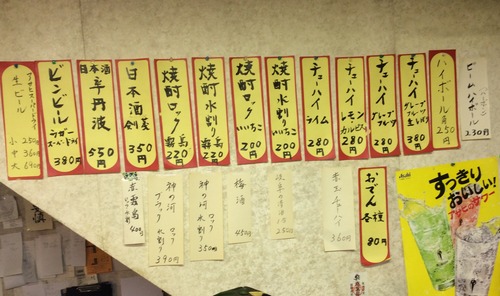 生ビール
アサヒスーパードライ
小 250
中 360
大 690
ビンビール
ラガー
スーパードライ
380円
日本酒
辛丹波
550円
日本酒
剣菱
350円
焼酎ロック
霧島
220円
焼酎水割り
霧島
220円
焼酎ロック
いいちこ
200円
焼酎水割り
いいちこ
200円
チューハイ
ライム
280円
チューハイ
レモン
カルピス
280円
チューハイ
グレープ
フルーツ
280円
チューハイ
グレープフルーツ
生しぼり
380円
ハイボール
角
250円
ビームハイボール
230円
赤霧島
400円
神の河 ロック
水割り
390円
神の河 ロック
水割り
350円
梅酒
450円
250円
チューハイ
360円
おでん
各種
80円
Asahi
すっきり
おいしい!
アサヒのサワー